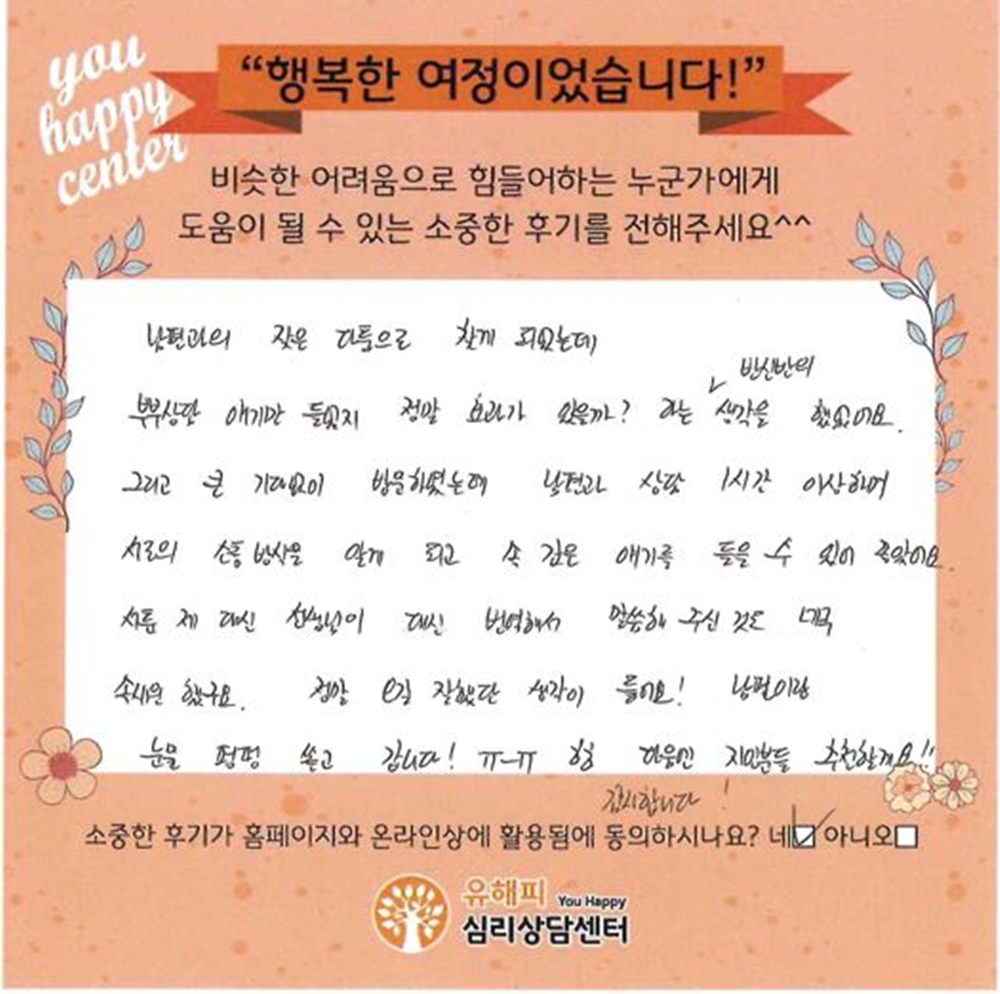 you
happy
center
“행복한 여정이었습니다!”
비슷한 어려움으로 힘들어하는 누군가에게
도움이 될 수 있는 소중한 후기를 전해주세요^^
남편과의 잦은 다툼으로 찾게 되었는데
반신반의
부부상담 얘기만 들었지 정말 효과가 있을까? 하는 생각을 했었어요.
그리고 큰 기대없이 방문하였는데 남편과 상담 1시간 이상하며
서로의 소통 방식을 알게 되고 속 깊은 얘기를 들을 수 있어 좋았어요.
서툰 제 대신 선생님이 대신 번역해서 말씀해 주신 것도
속시원 했구요. 정말 오길 잘했단 생각이 들어요! 남편이랑
눈물 펑펑 쏟고 갑니다! ㅠ-ㅠ 힝 다음엔 지인분들 추천할게요!!
감사합니다!
소중한 후기가 홈페이지와 온라인상에 활용됨에 동의하시나요? 네☑ 아니오☐
유해피 You Happy
심리상담센터